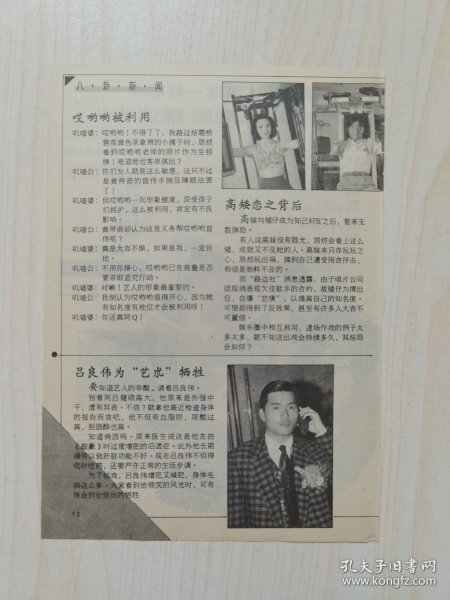 八·卦·新·闻
哎哟哟被利用
叽喳婆：哎哟哟！不得了了，我路过给霸桥
售卖黄色录象带的小摊子时，居然
看到哎哟哟老师的照片作为生招
牌！难道她也客串演出？
叽喳公：你们女人就是这么敏感，这只不过
是黄带商的宣传手腕及障眼法罢
了！
叽喳婆：但哎哟哟一向形象健康，深受孩子
们拥护，这么被利用，肯定有不良
影响。
叽喳公：黄带商却认为这是义务帮哎哟哟宣
传呢？
叽喳婆：真是大言不惭，如果是我，一定告
他。
叽喳公：不用你操心，哎哟哟已在商量是否
要采取追究行动。
叽喳婆：对嘛！艺人的形象最重要的。
叽喳公：我倒认为哎哟哟值得开心，因为她
有知名度有地位才会被利用呀！
叽喳婆：你还真阿Q！
高矮恋之背后
高妹与矮仔成为知己好友之后，惹来无
数弹劾。
有人说高妹没有眼光，居然会看上这么
矮，成就又不及她的人。高妹本只存玩玩之
心，居然玩出祸，搞到自己遭受闲言抨击，
相信是始料不及的。
而“路边社”消息透露，由于唱片公司
欲取消表现欠佳歌手的合约，故矮仔为博出
位，自爆“恋情”，以提高自己的知名度。
可惜却得到了反效果，甚至有许多人大表不
可置信。
娱乐圈中相互利用，逢场作戏的例子太
多太多，就不知这出戏会持续多久，其结局
会如何？
吕良伟为“艺术”牺牲
要知道艺人的辛酸，请看吕良伟。
别看阿吕健硕高大，他原来是外强中
干，虚有其表。不信？就拿他最近检查身体
的报告而言吧，他不但有血脂肪，尿酸过
高，胆固醇也高。
知道病因吗？原来医生说这是他在拍
《跛豪》时过度增肥的后遗症。此外他长期
操劳以致肝脏功能不好。现在吕良伟不但得
依时吃药，还要严守正常的生活步调。
为了拍戏，吕良伟增肥又减肥，身体毛
病这么多。大家看到他领奖的风光时，可有
体会到他做出的牺牲
12
孔夫子旧书网
www.kongfz.com